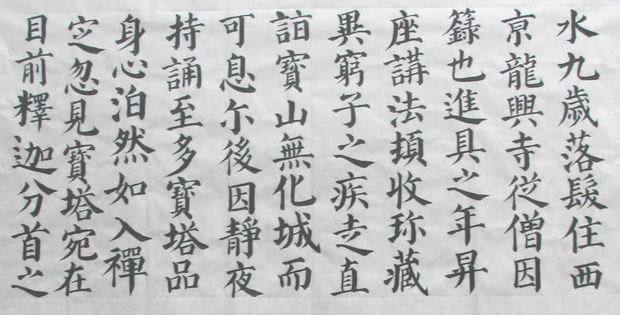 水九歲落髮住西
京龍興寺從僧因
籙也進具之年昇
座講法頓收珎藏
異窮子之疾走直
詣寶山無化城而
可息尒後因靜夜
持誦至多寶塔品
身心泊然如入禪
定忽見寶塔宛在
目前釋迦分首之